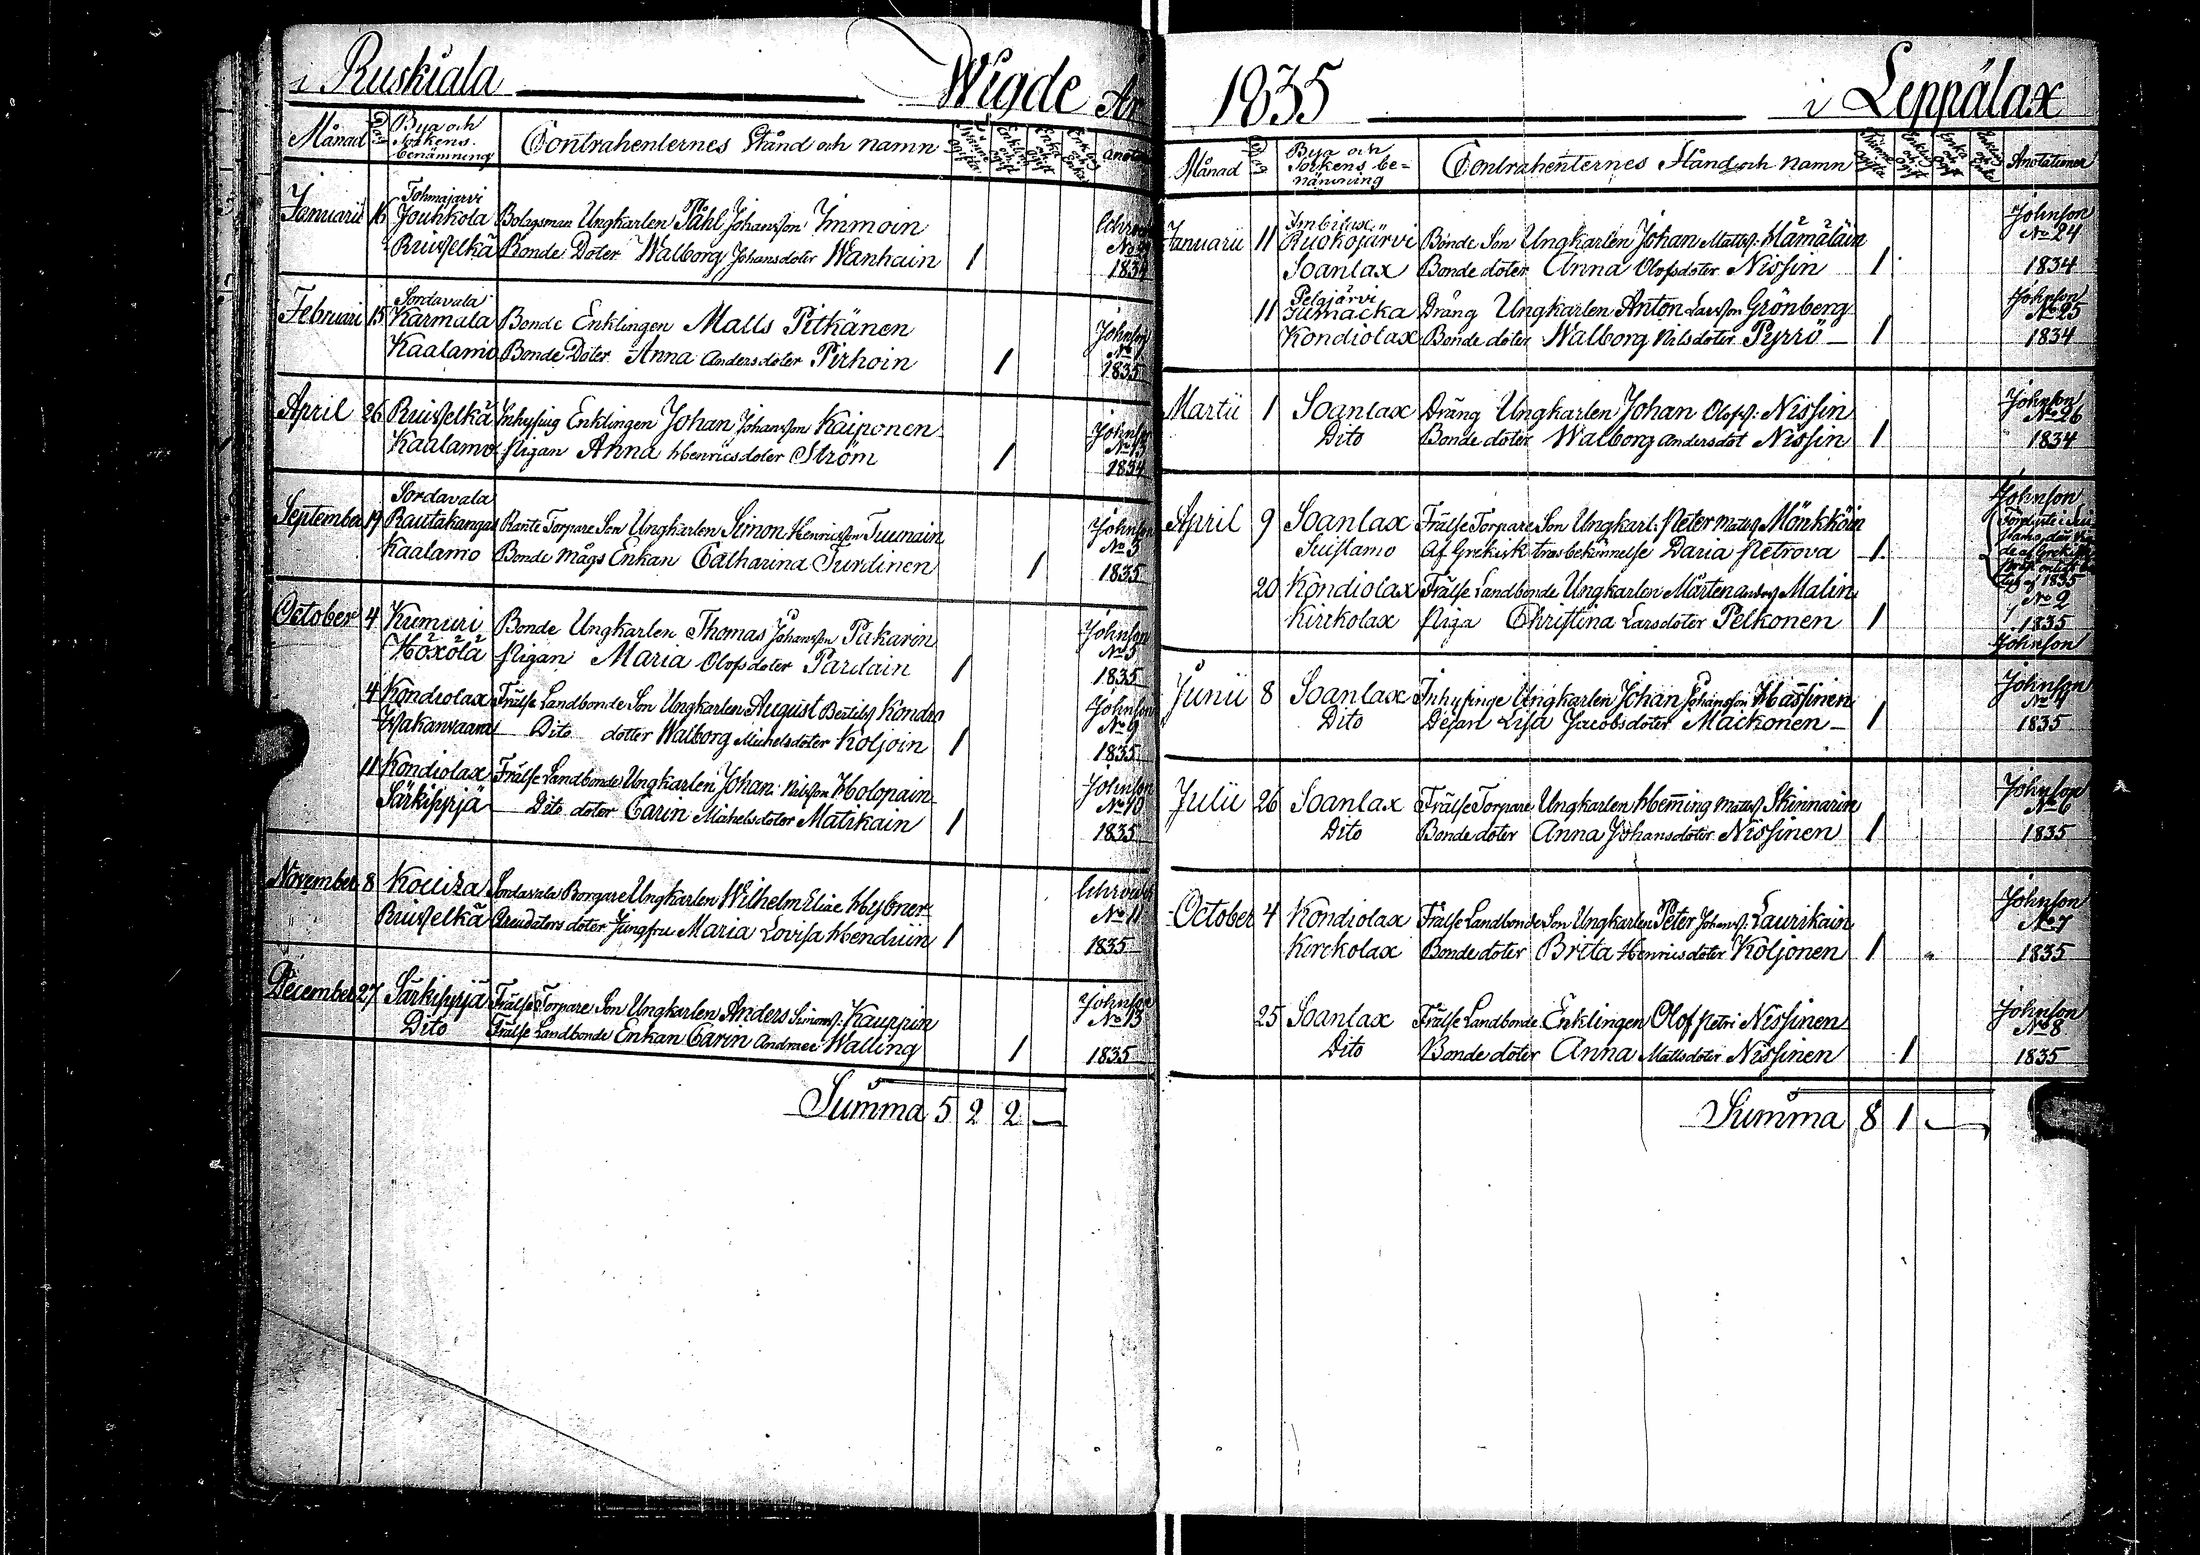 i Ruskiala Wigde År
Månad Dag Bya och Sockens benämning Contrahenternes Stånd och namn
Tohmajärvi
Januarii 16 Jouhkola Bolagsman Ungkarlen Påhl Johansson Immoin
Ruisselkä Bonde Doter Walborg Johansdoter Wanhain 1
1834
Sordavala
Februari 15 Karmala Bonde Enklingen Matts Pitkänen Johnson
Kaalamo Bonde Doter Anna Andersdoter Pirhoin 1 1835
April 26 Ruisselkä Inhysing Enklingen Johan Johansson Kaiponen Johnson
Kaalamo Pigan Anna Henricsdoter Ström 1 1834
Sordavala
September 19 Rautakangas Rante Torpare Son Ungkarlen Simon Henricsson Tuumain Johnson No 3
Kaalamo Bonde Mågs Enkan Catharina Turdinen 1 1835
October 4 Kumuri Bonde Ungkarlen Thomas Johansson Pakarin Johnson No 5
Höxölä Pigan Maria Olofsdoter Pardain 1 1835
4 Kondiolax Frälse Landbonde Son Ungkarlen August Bertils Kondra Johnson No 9
Hakanvaara Dito dotter Walborg Michelsdoter Koljoin 1 1835
11 Kondiolax Frälse Landbonde Ungkarlen Johan Nilsson Holopain Johnson No 10
Särkisyrjä Dito doter Carin Michelsdoter Matikain 1 1835
November 8 Kouiza Sordavala Borgare Ungkarlen Wilhelm Eliae Hybner No 11
Ruisselkä Arendators doter Jungfru Maria Lovisa Hendriin 1 1835
December 27 Särkisyrjä Frälse Torpare Son Ungkarlen Anders Simonss: Kauppin Johnson No 13
Dito Frälse Landbonde Enkan Carin Andraee Walling 1 1835
Summa 5 2 2 —
1835 i Leppälax
Månad Dag Bya och Sockens benämning Contrahenternes Stånd och namn Anotationer
Imbilax
Januarii 11 Ruokojärvi Bonde Son Ungkarlen Johan Mattss: Hämäläin Johnson No 24
Soanlax Bonde doter Anna Olofsdoter Nissin 1 1834
Pelgjärvi
11 Drång Ungkarlen Anton Larsson Grönberg Johnson No 25
Kondiolax Bonde doter Walborg Nilsdoter Pyrrö 1 1834
Martii 1 Soanlax Dräng Ungkarlen Johan Olofss: Nissin Johnson No 26
Dito Bonde doter Walborg Andersdot Nissin 1 1834
April 9 Soanlax Frälse Torpare Son Ungkarl: Peter Matss Mönkköin Johnson
Suistamo Af Grekisk trosbekännelse Daria Petrova 1
20 Kondiolax Frälse Landbonde Ungkarlen Mårten Anders Malin No 2
Kirckolax Piga Christina Larsdoter Pelkonen 1 1835
Johnson
Junii 8 Soanlax Inhysinge Ungkarlen Johan Johansson Hassinen Johnson No 4
Dito Dejan Lisa Jacobsdoter Maickonen 1 1835
Julii 26 Soanlax Frälse Torpare Ungkarlen Hemming Matss Skinnarin Johnson No 6
Dito Bonde doter Anna Johansdoter Nissinen 1 1835
October 4 Kondiolax Frälse Landbonde Son Ungkarlen Peter Johanss: Laurikain Johnson No 7
Kirckolax Bonde doter Brita Henricsdoter Koljonen 1 1835
25 Soanlax Frälse Landbonde Enklingen Olof Petri Nissinen Johnson No 8
Dito Bonde doter Anna Mattsdoter Nissinen 1 1835
Summa 8 1 —